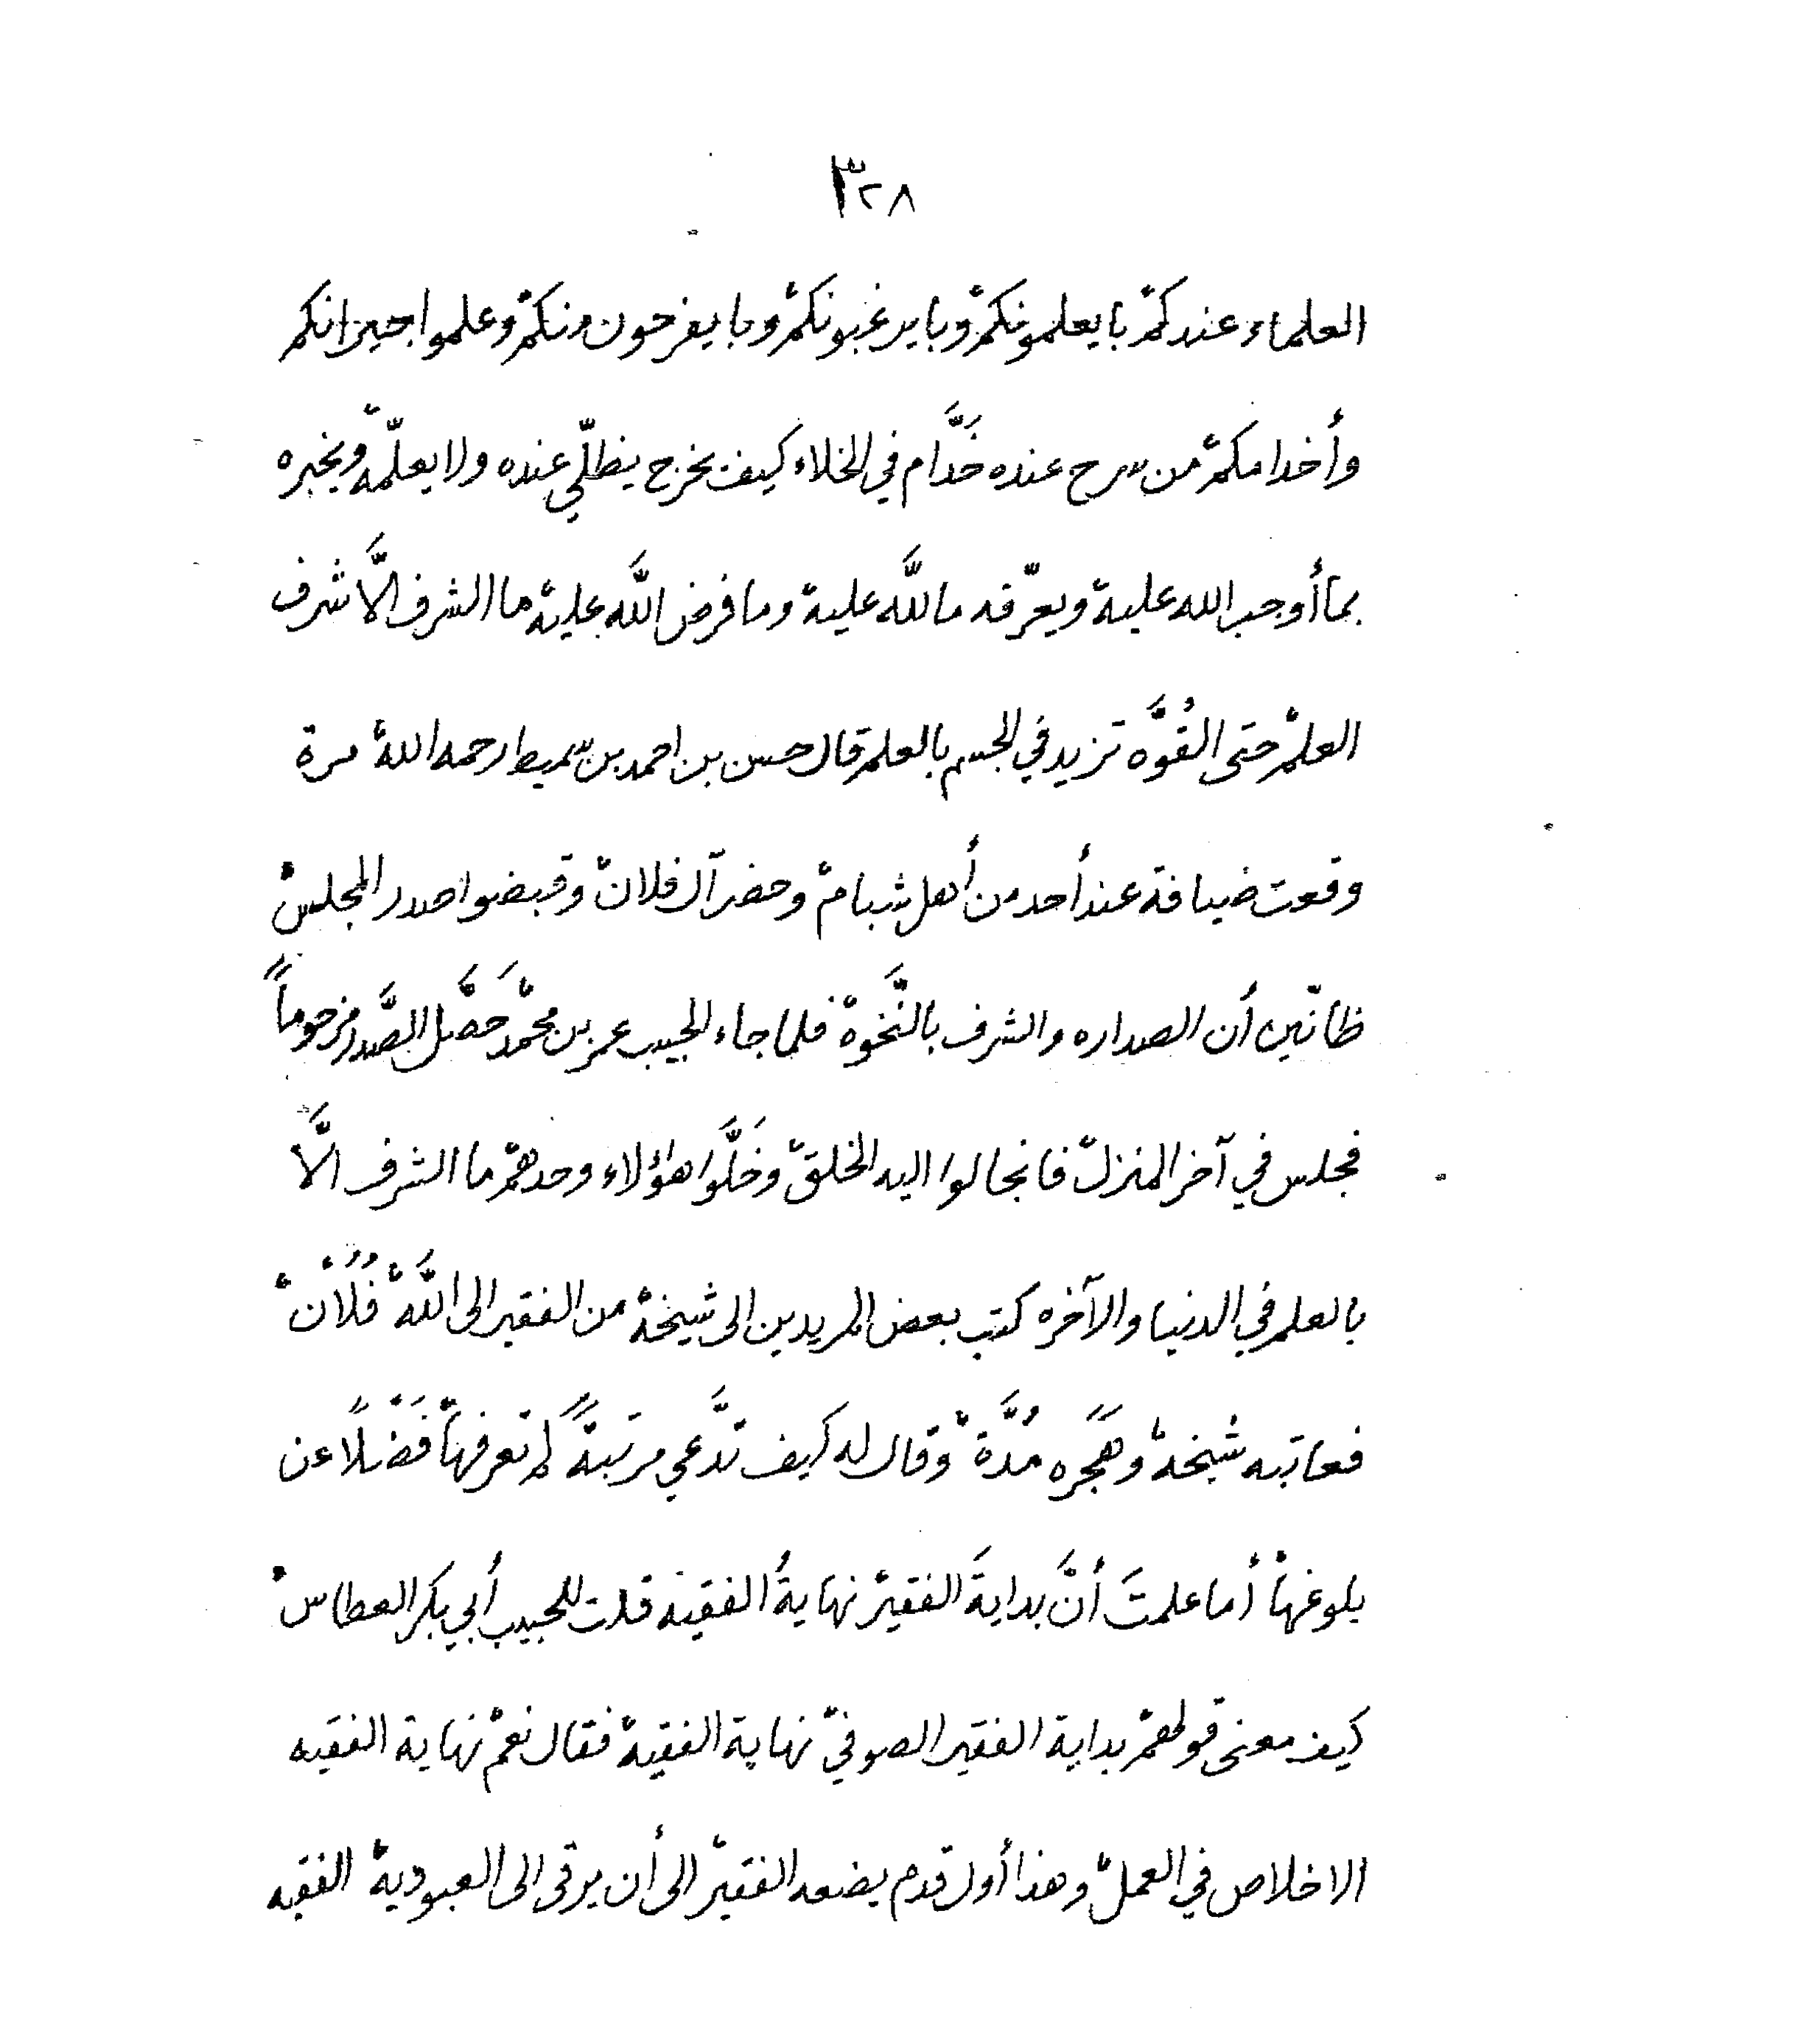 ٣٢٨
العلماء عندكمْ بايعلمونكمْ وبايرغبونكمْ وبايفرحون منكمْ وعلموا جيرانكم
وأخدامكمْ من سرح عنده خَدَّام في الخلاء كيف يخرج يظلّي عنده ولا يعلّمهْ ويخبره
بما أوجب الله عليهْ ويعرّفه ما للَّه عليه وما فرض اللَّه عليهْ ما الشرف الَّا شرف
العلمْ حتى القُوَّه تزيد في الجسم بالعلم قال حسن بن احمد بن سميط رحمه اللهْ مرة
وقعت ضيافة عند أحد من أهل شبامْ وحضر آل فلانْ وقبضوا صدر المجلسْ
ظانّين أن الصداره والشرف بالنَّخوهْ فلما جاء الحبيب عمر بن محمَّدْ حَصَّل الصَّدر مزحوماً
فجلس في آخر المنزلْ فانجالوا اليه الخلقْ وخَلَّوا هؤلاء وحدهمْ ما الشرف الَّا
بالعلم في الدنيا والآخره كتب بعض المريدين الى شيخهْ من الفقير الى اللَّهْ فُلُانْ
فعاتبه شيخهْ وهَجَره مُدَّةْ وقال له كيف تدَّعي مرتبةً لم تعرفهاْ فَضْلاً عن
بلوغهاْ أما علمتَ أنَّ بدايةَ الفقيرْ نهايةُ الفقيه قلت للحبيب أبي بكر العطاسْ
كيف معنى قولهمْ بداية الفقير الصوفيْ نهاية الفقيهْ فقال نعمْ نهاية الفقيه
الاخلاص في العملْ وهذا أول قدم يضعه الفقيرْ الى أن يرقى الى العبوديةْ الفقيه